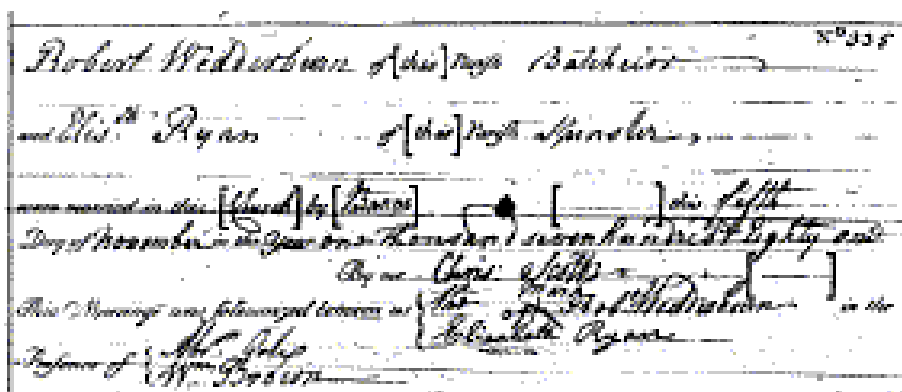 No 335
Robert Wedderburn of [this] Parish Batchelor
and Eliz.th Ryan of [this] Parish Spinster
were married in this [Church] by [Banns] [ ] this fifth
Day of November in the Year one Thousand seven hundred Eighty one
By me Chris:
This Marriage was solemnized between us Rob Wedderburn in the
Elizabeth Ryan
Presence of